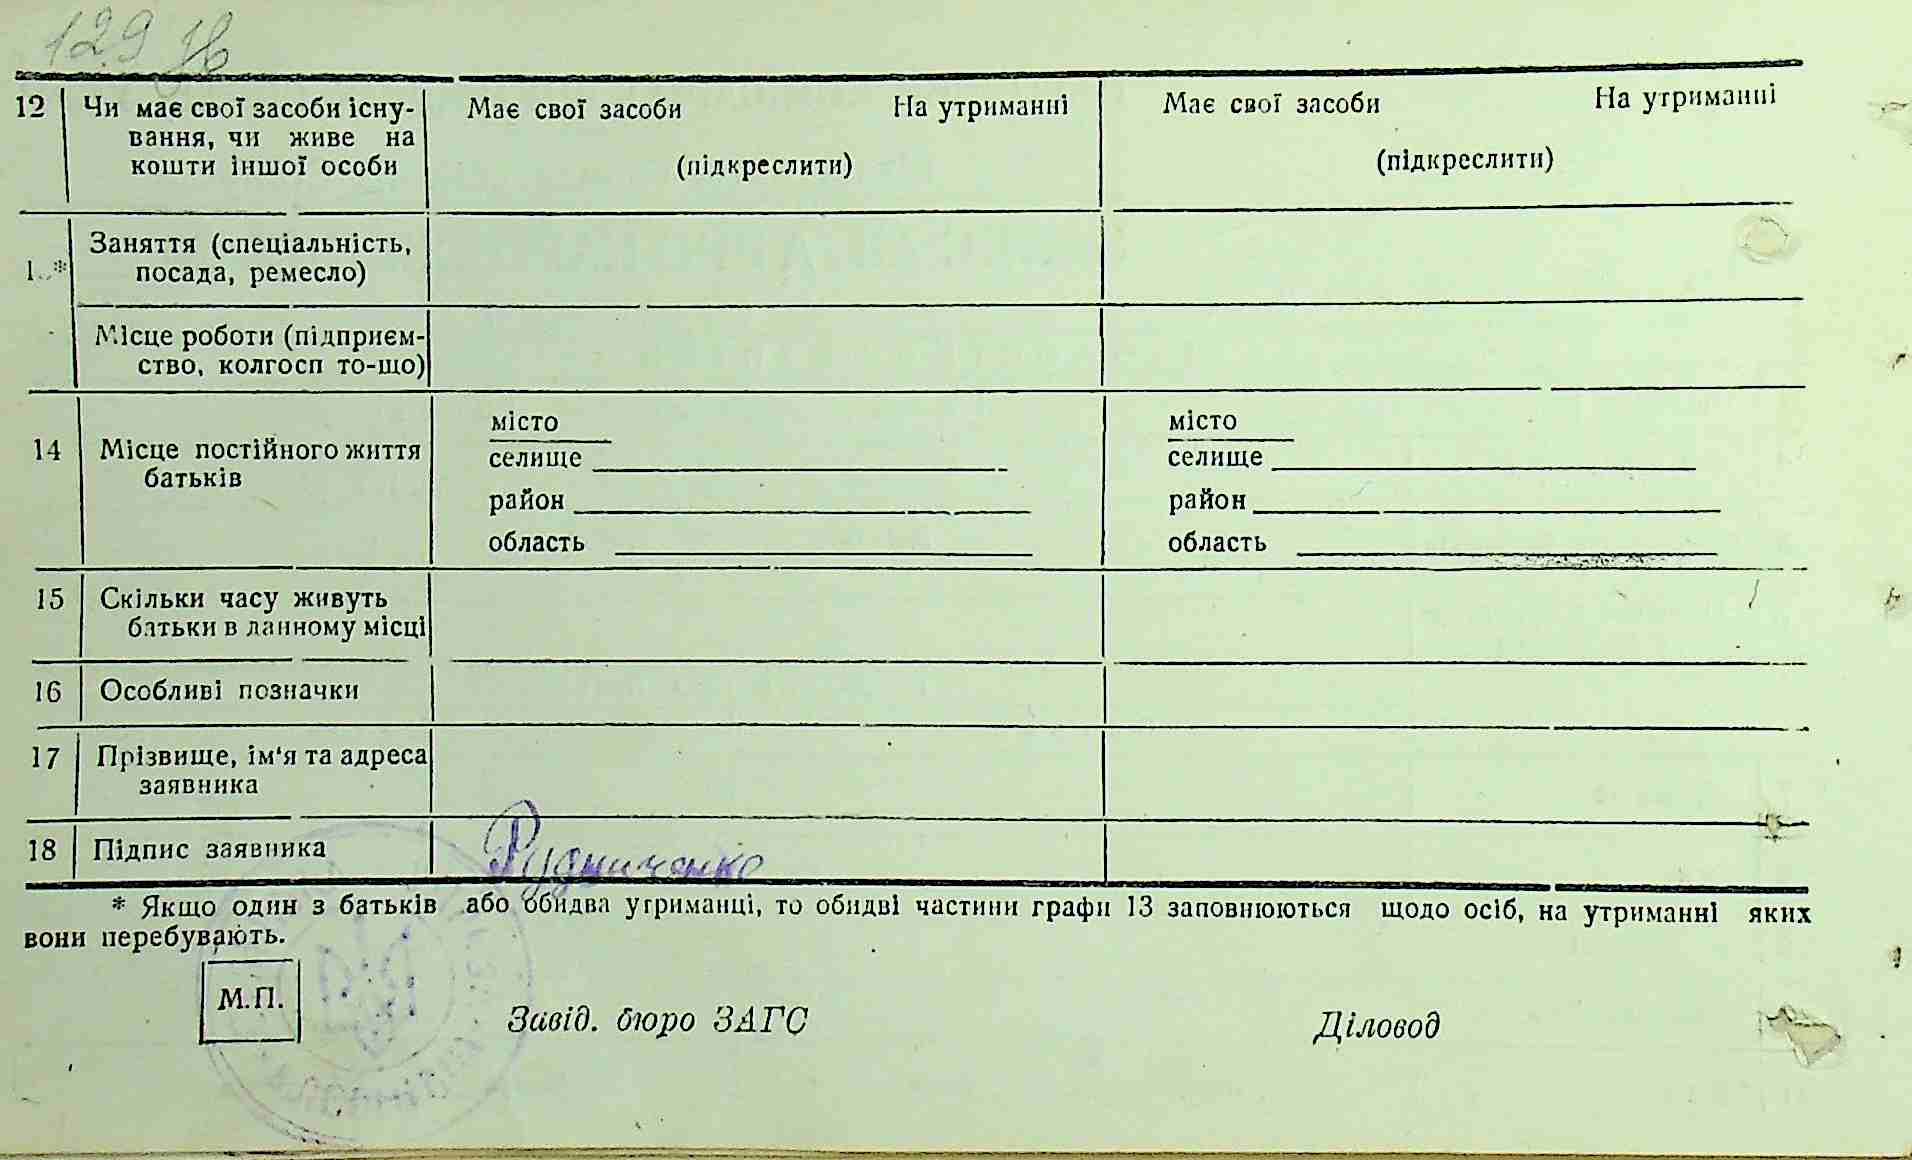 129
12 Чи має свої засоби існу- Має свої засоби На утриманні Має свої засоби На утриманні
вання, чи живе на
кошти іншої особи (підкреслити) (підкреслити)
Заняття (спеціальність,
1 * посада, ремесло)
Місце роботи (підприєм-
ство, колгосп то-що)
місто місто
14 Місце постійного життя селище селище
батьків
район район
область область
15 Скільки часу живуть
батьки в данному місці
16 Особливі позначки
17 Прізвище, ім'я та адреса
заявника
18 Підпис заявника Рудниченко
* Якщо один з батьків або обидва утриманці, то обидві частини графи 13 заповнюються щодо осіб, на утриманні яких
вони перебувають.
М.П.
Завід. бюро ЗАГС Діловод